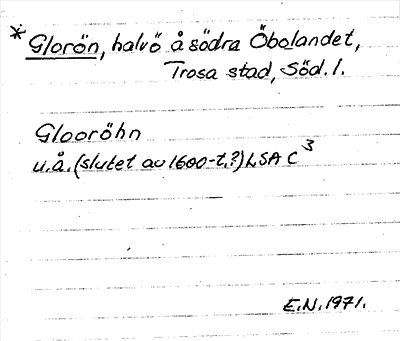 * Glorön, halvö å södra Öbolandet,
Trosa stad, Söd. l.
Glooröhn
u.å. (slutet av 1600-t.?) LSA C³
E.N. 1971.